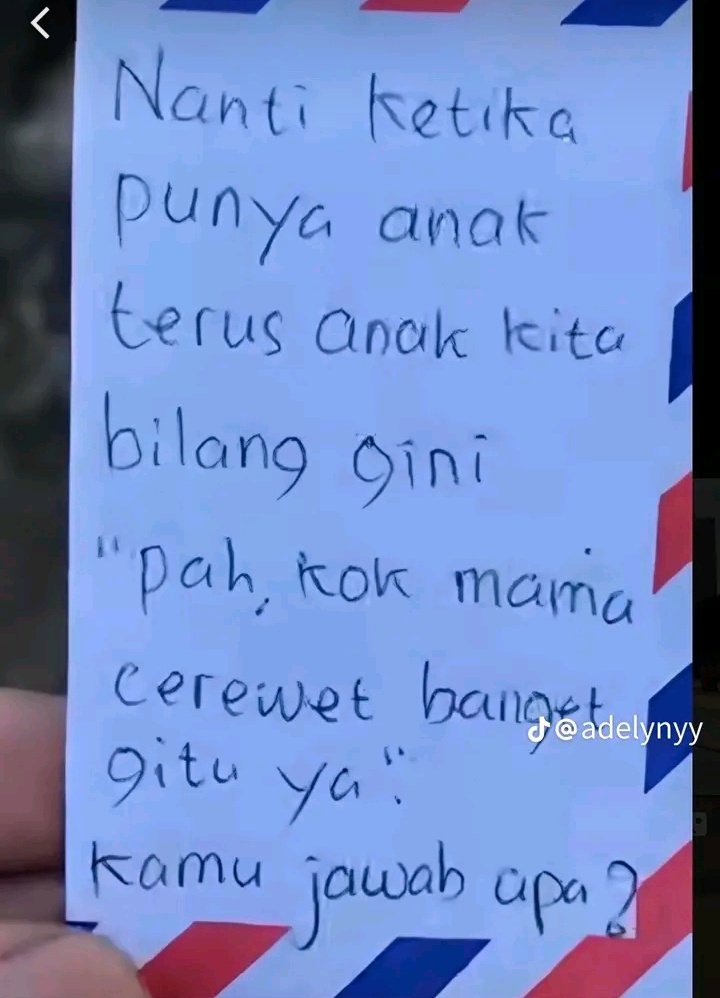 Nanti ketika
punya anak
terus anak kita
bilang gini
"pah, kok mama
cerewet banget
@adelynyy
gitu ya".
kamu jawab apa?